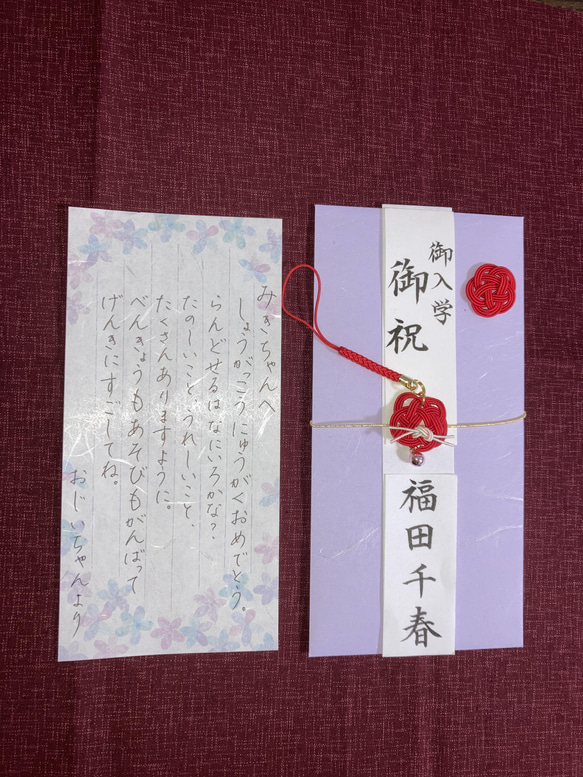 みきちゃんへ
しょうがっこうにゅうがくおめでとう。
らんどせるはなにいろかな？、
たのしいこと、うれしいこと、
たくさんありますように。
べんきょうもあそびもがんばって
げんきにすごしてね。
おじいちゃんより
御入学
御祝
福田千春